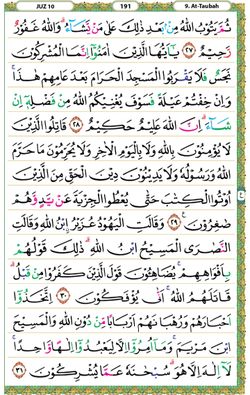 JUZ 10 191 9. At-Taubah
ثُمَّ يَتُوبُ اللّٰهُ مِنْۢ بَعْدِ ذٰلِكَ عَلٰى مَنْ يَّشَاۤءُۗ وَاللّٰهُ غَفُوْرٌ
رَّحِيْمٌ ﴿٢٧﴾ يٰٓاَيُّهَا الَّذِيْنَ اٰمَنُوْٓا اِنَّمَا الْمُشْرِكُوْنَ
نَجَسٌ فَلَا يَقْرَبُوا الْمَسْجِدَ الْحَرَامَ بَعْدَ عَامِهِمْ هٰذَاۚ
وَاِنْ خِفْتُمْ عَيْلَةً فَسَوْفَ يُغْنِيْكُمُ اللّٰهُ مِنْ فَضْلِهٖٓ اِنْ
شَاۤءَۗ اِنَّ اللّٰهَ عَلِيْمٌ حَكِيْمٌ ﴿٢٨﴾ قَاتِلُوا الَّذِيْنَ
لَا يُؤْمِنُوْنَ بِاللّٰهِ وَلَا بِالْيَوْمِ الْاٰخِرِ وَلَا يُحَرِّمُوْنَ مَا حَرَّمَ
اللّٰهُ وَرَسُوْلُهٗ وَلَا يَدِيْنُوْنَ دِيْنَ الْحَقِّ مِنَ الَّذِيْنَ
اُوْتُوا الْكِتٰبَ حَتّٰى يُعْطُوا الْجِزْيَةَ عَنْ يَّدٍ وَّهُمْ
صٰغِرُوْنَ ﴿٢٩﴾ وَقَالَتِ الْيَهُوْدُ عُزَيْرُ ِۨابْنُ اللّٰهِ وَقَالَتِ
النَّصٰرَى الْمَسِيْحُ ابْنُ اللّٰهِۗ ذٰلِكَ قَوْلُهُمْ
بِاَفْوَاهِهِمْۚ يُضَاهِـُٔوْنَ قَوْلَ الَّذِيْنَ كَفَرُوْا مِنْ قَبْلُۗ
قَاتَلَهُمُ اللّٰهُۚ اَنّٰى يُؤْفَكُوْنَ ﴿٣٠﴾ اِتَّخَذُوْٓا
اَحْبَارَهُمْ وَرُهْبَانَهُمْ اَرْبَابًا مِّنْ دُوْنِ اللّٰهِ وَالْمَسِيْحَ
ابْنَ مَرْيَمَۚ وَمَآ اُمِرُوْٓا اِلَّا لِيَعْبُدُوْٓا اِلٰهًا وَّاحِدًاۚ
لَآ اِلٰهَ اِلَّا هُوَۗ سُبْحٰنَهٗ عَمَّا يُشْرِكُوْنَ ﴿٣١﴾